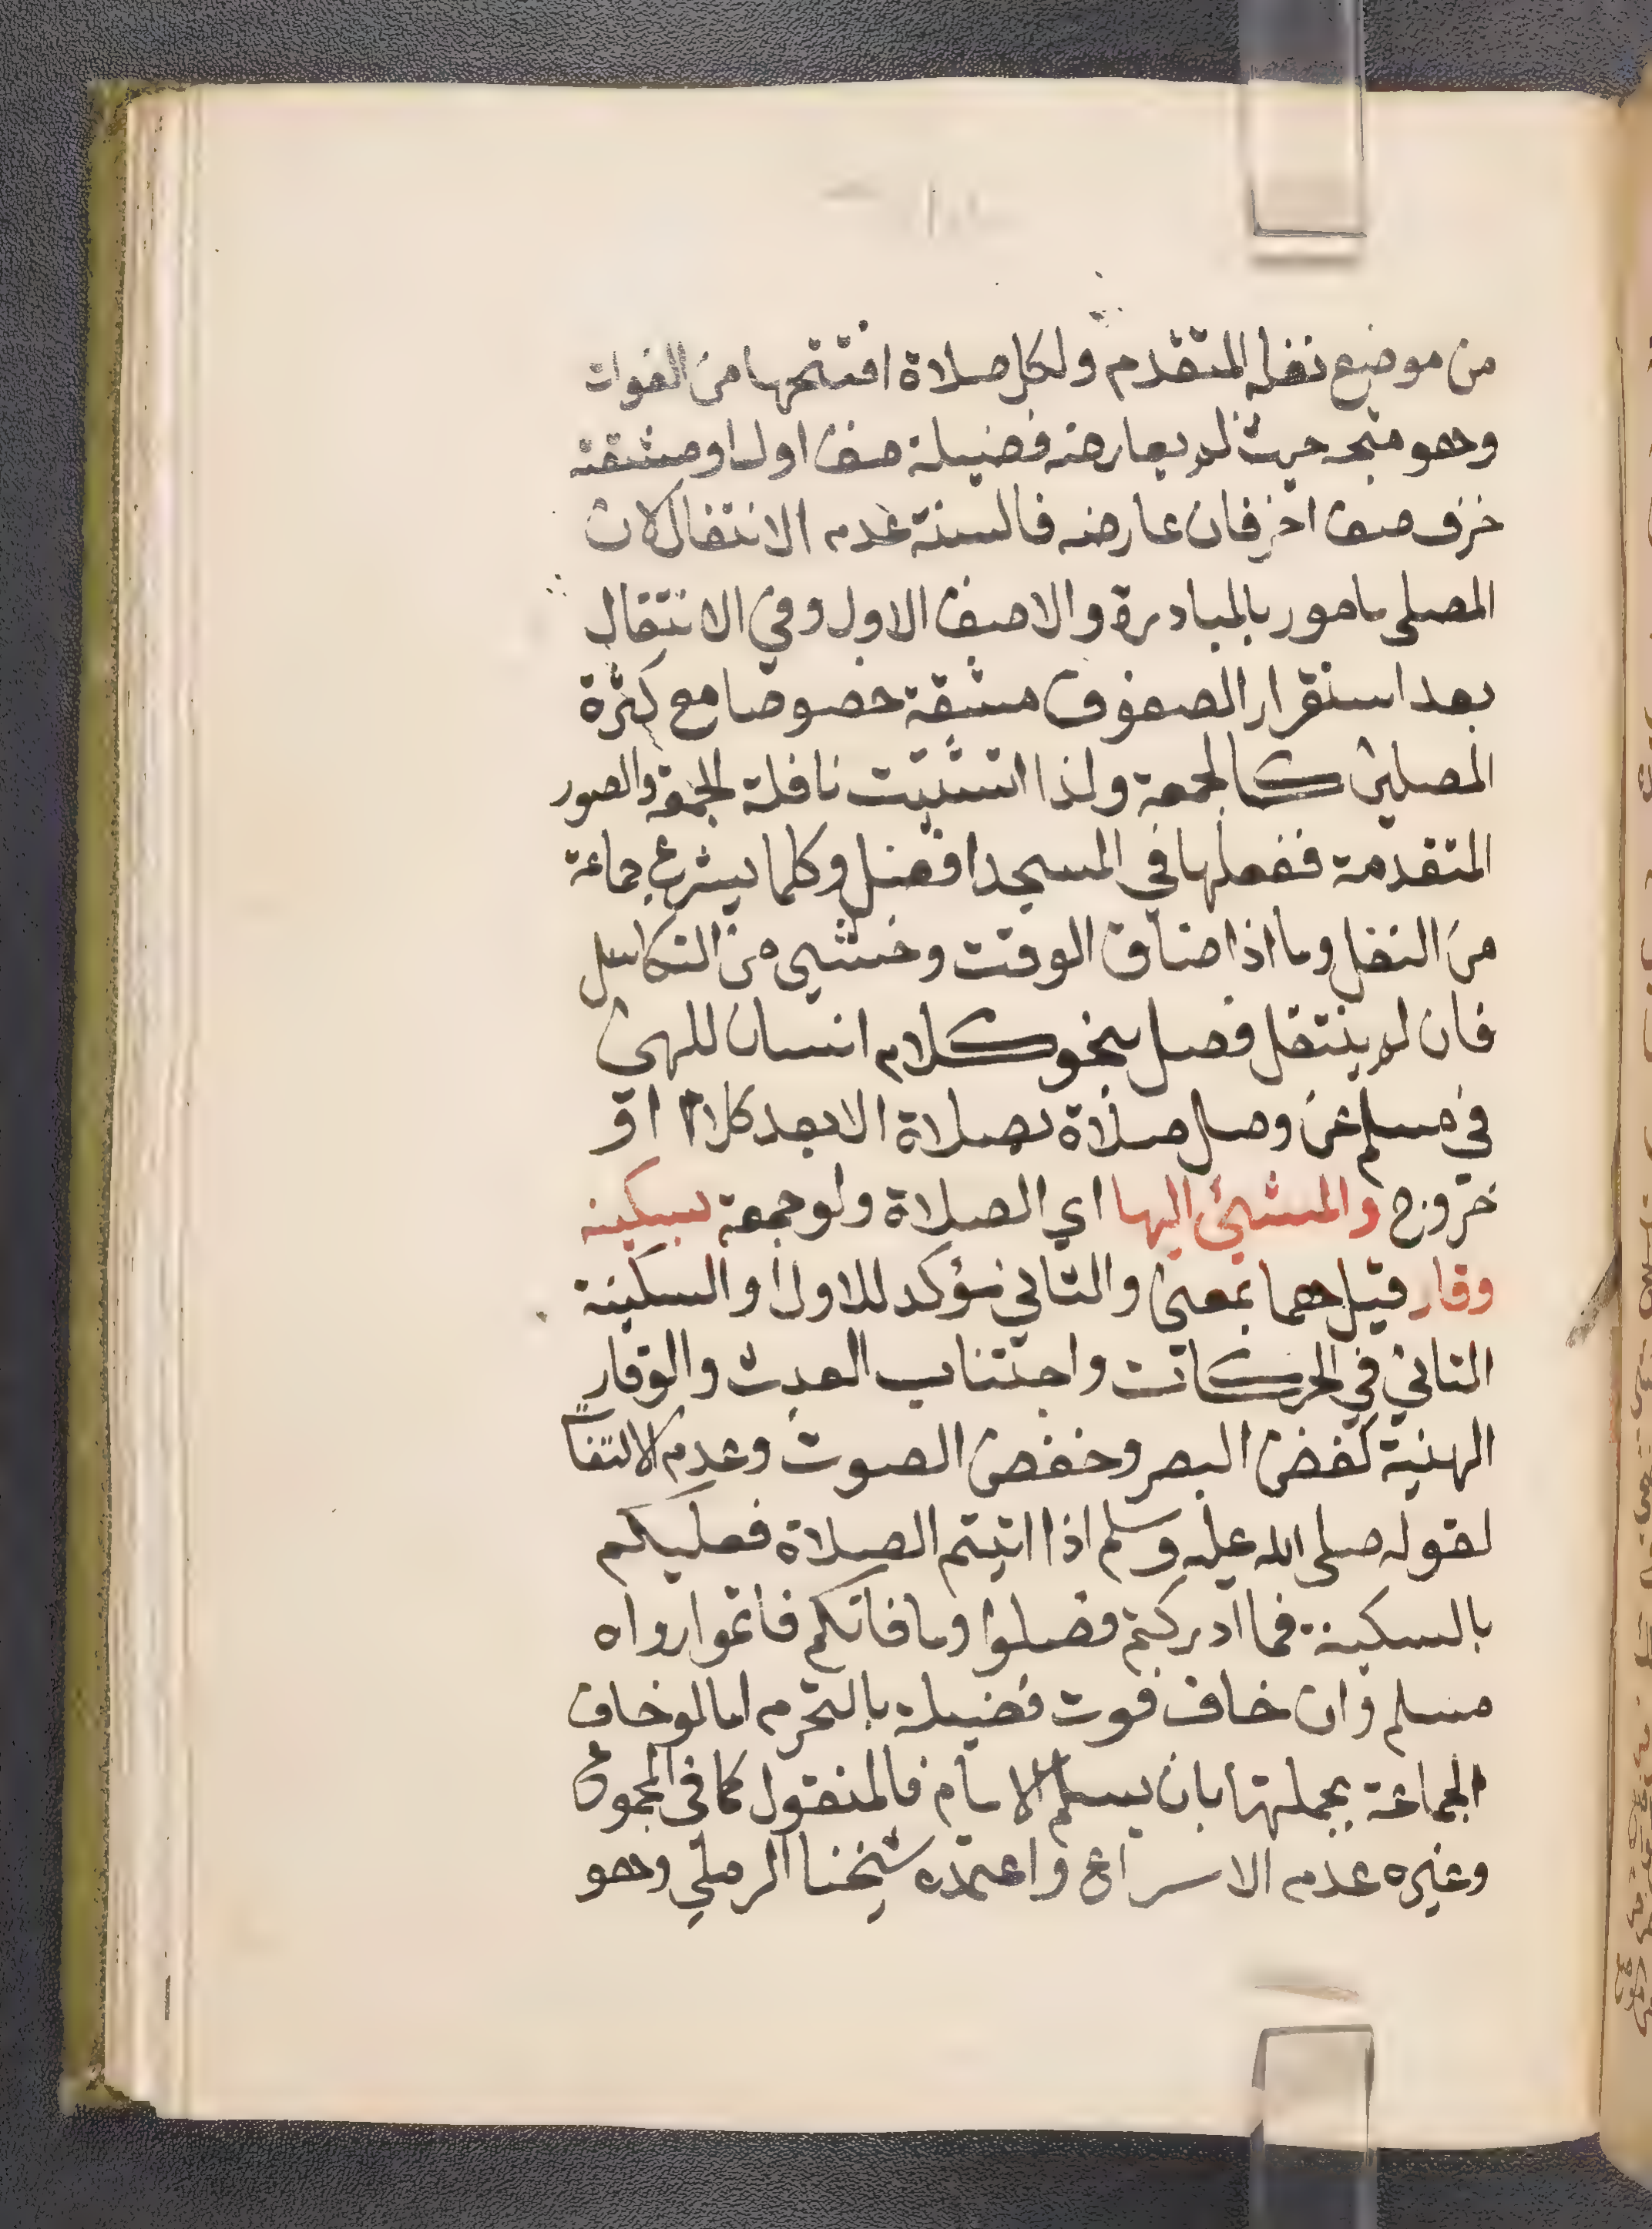 من موضع نفله المتقدم ولكل صلاة افتتحها من الفوات
وهو متجه حيث لم يعارضه فضيلة صف اول او مشقة
خرق صف اخر فان عارضه فالسنة عدم الانتقال لان
المصلى مامور بالمبادرة والا صف الاول وفي الانتقال
بعد استقرار الصفوف مشقة خصوصا مع كثرة
المصلين كالجمعة ولذا استثنيت نافلة الجمعة والصور
المتقدمة ففعلها في المسجد افضل وكلما يشرع جماعة
من النفل وما اذا ضاق الوقت وخشي من التكاسل
فان لم ينتقل فصل بنحو كلام انسان للنهي
في مسلم عن وصل صلاة بصلاة الا بعد كلام او
خروج والمشي اليها اي الصلاة ولو جمعة بسكينه
وقار قيل هما بمعنى والثاني مؤكد للاول والسكينة
التاني في الحركات واجتناب العبث والوقار
الهنية كغض البصر وخفض الصوت وعدم الالتفا
لقوله صلى الله عليه وسلم اذا اتيتم الصلاة فعليكم
بالسكينة فما ادركتم فصلوا وما فاتكم فاتموا رواه
مسلم وان خاف فوت فضيلة بالتحرم اما لو خاف
الجماعة بجملتها بان يسلم الامام فالمنقول كما في المجموع
وغيره عدم الاسراع واعتمده شيخنا الرملي وهو